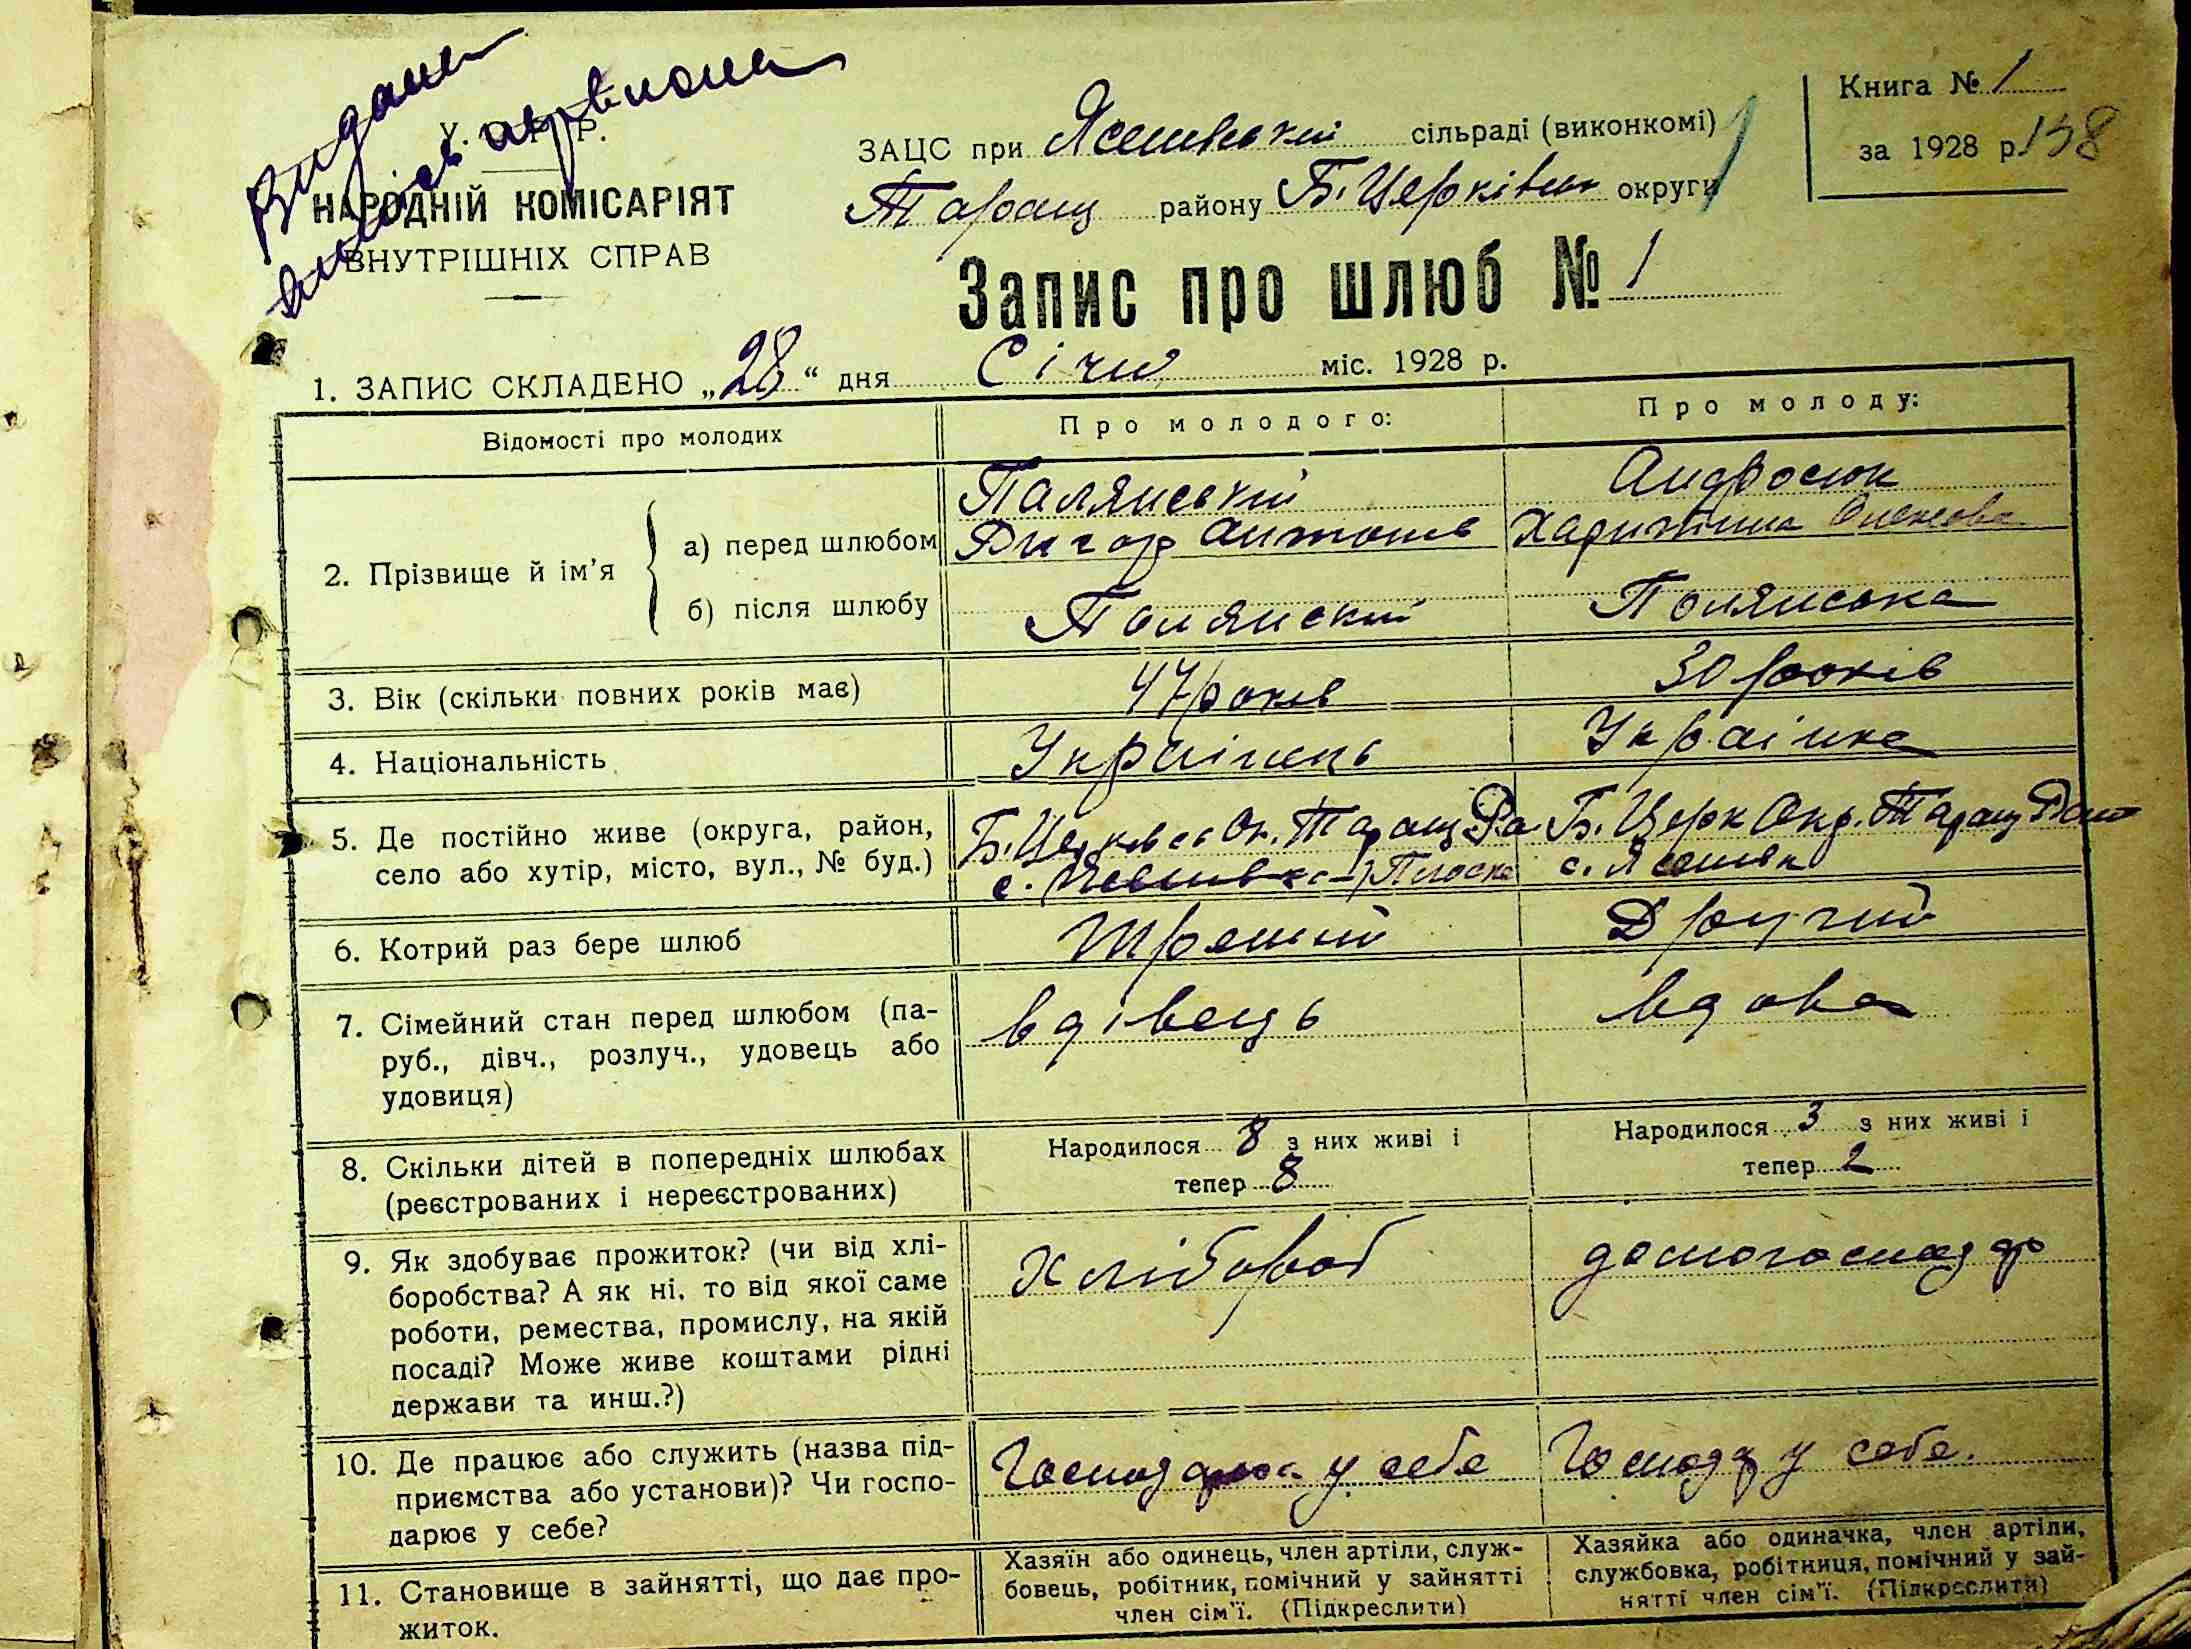 Видани
У. Р.Р.
НАРОДНІЙ КОМІСАРІЯТ
ВНУТРІШНІХ СПРАВ
ЗАЦС при Ясенівській сільраді (виконкомі)
Таращ району Б. Церківськ округи
Книга № 1
за 1928 р. 138
Запис про шлюб № 1
1. ЗАПИС СКЛАДЕНО „28“ дня Січн міс. 1928 р.
Відомості про молодих
Про молодого:
Про молоду:
2. Прізвище й ім'я
а) перед шлюбом
Паляиський
Антонів
Андросюк
Харитина
б) після шлюбу
Полянский
Полянська
3. Вік (скільки повних років має)
47 років
30 років
4. Національність
Українець
Українка
5. Де постійно живе (округа, район,
село або хутір, місто, вул., № буд.)
Б. Церківсь Ок. Таращ Ра
с. Ясенівка Плоска
Б. Церк Окр. Таращ Рай
с. Ясенівк
6. Котрий раз бере шлюб
Третий
Другий
7. Сімейний стан перед шлюбом (па-
руб., дівч., розлуч., удовець або
удовиця)
вдівець
вдова
8. Скільки дітей в попередніх шлюбах
(реєстрованих і нереєстрованих)
Народилося 8 з них живі і
тепер 8
Народилося 3 з них живі і
тепер 2
9. Як здобуває прожиток? (чи від хлі-
боробства? А як ні, то від якої саме
роботи, ремества, промислу, на якій
посаді? Може живе коштами рідні
держави та инш.?)
Хлібороб
домогосподар
10. Де працює або служить (назва під-
приємства або установи)? Чи госпо-
дарює у себе?
Господарює у себе
Господар у себе.
11. Становище в зайнятті, що дає про-
житок.
Хазяїн або одинець, член артіли, служ-
бовець, робітник, помічний у зайнятті
член сім'ї. (Підкреслити)
Хазяйка або одиначка, член артіли,
службовка, робітниця, помічний у зай-
нятті член сім'ї. (Підкреслити)